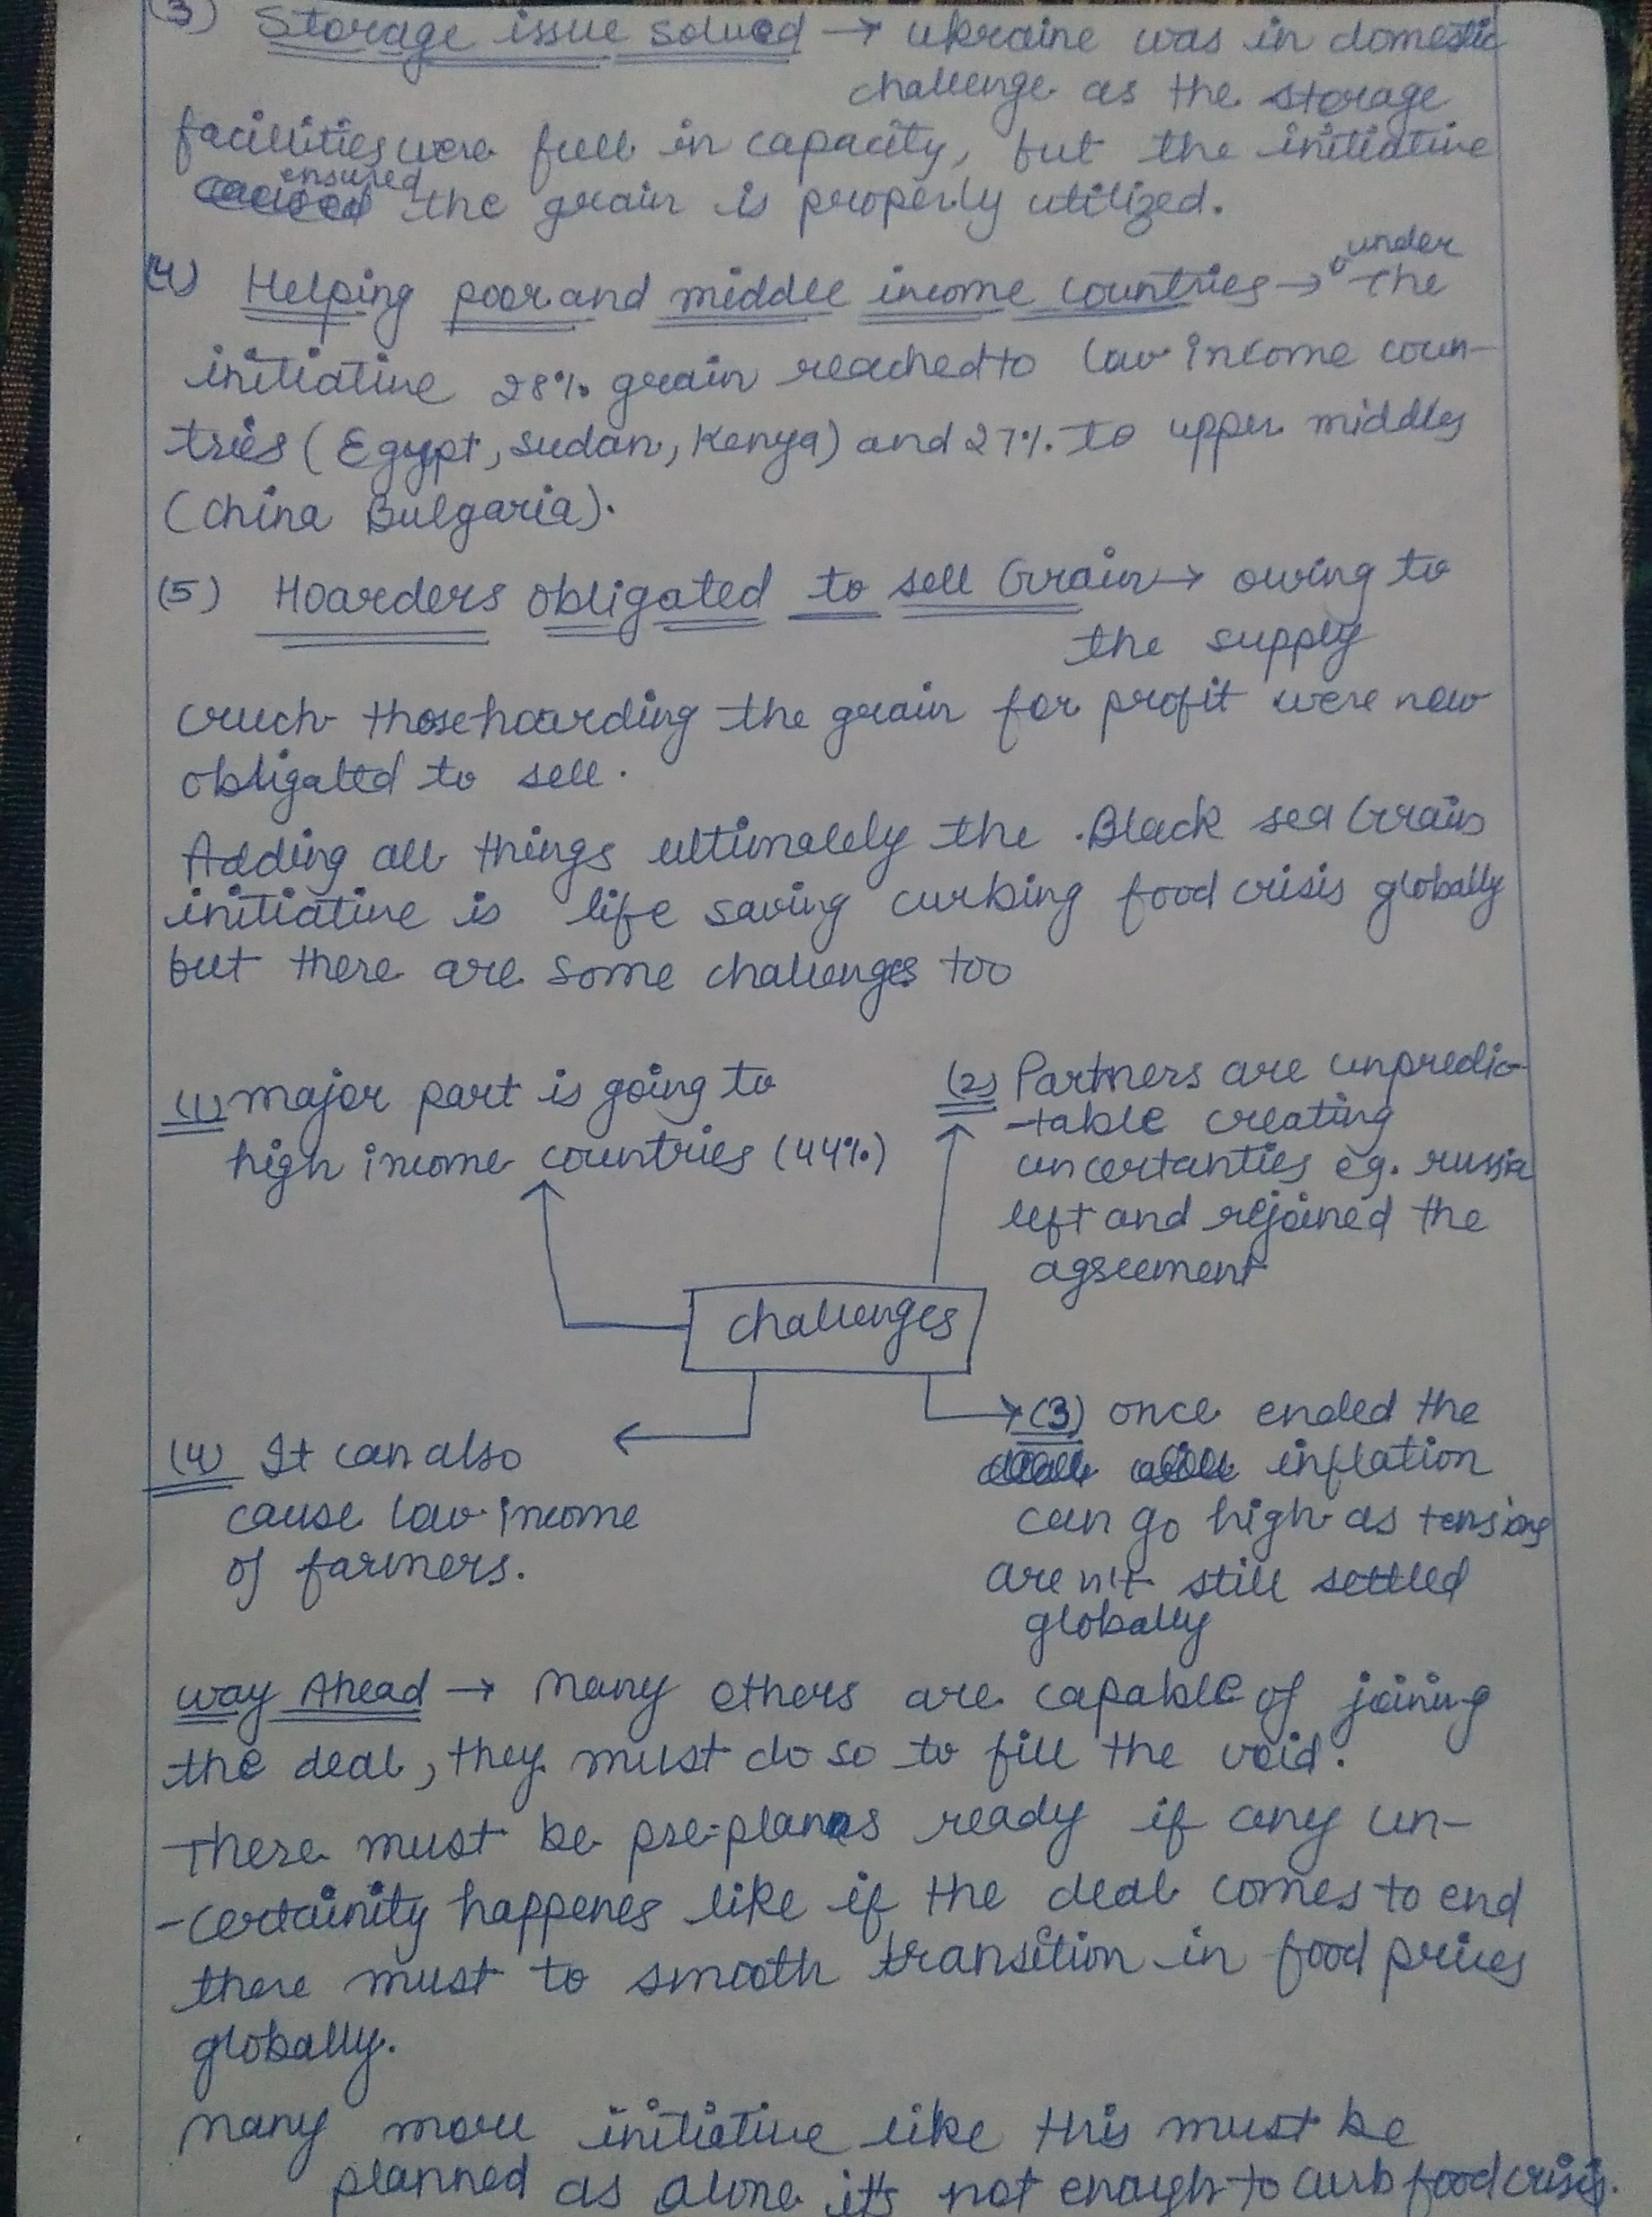 (3) Storage issue solved → ukraine was in domestic
challenge as the storage
facillities were full in capacity, but the initiative
ensured
the grain is properly utilized.
(4) Helping poor and middle income countries → under the
initiative 28% grain reached to low income coun-
tries (Egypt, Sudan, Kenya) and 27% to upper middles
(China Bulgaria).
(5) Hoarders obligated to sell Grain → owing to
the supply
cruch those hoarding the grain for profit were now
obligated to sell.
Adding all things ultimalely the Black sea Grain
initiative is life saving curbing food crisis globally
but there are some challenges too
(1) major part is going to
high income countries (44%)
(2) Partners are unpredic-
-table creating
uncertanties eg. russia
left and rejoined the
agreement
challenges
(3) once ended the
inflation
can go high as tensions
aren't still settled
globally
(4) It can also
cause low income
of farmers.
way Ahead → Many others are capable of joining
the deal, they must do so to fill the void.
There must be pre-plans ready if any un-
-certainity happenes like if the deal comes to end
there must to smooth transition in food prices
globally.
Many more initiative like this must be
planned as alone it's not enough to curb food crisis.